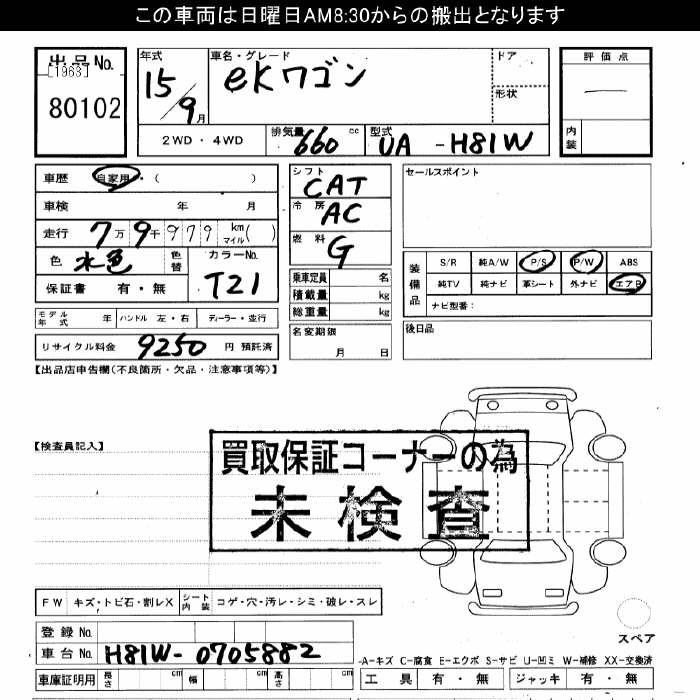 この車両は日曜日AM8:30からの搬出となります
出品No.
[1963]
80102
年式
15/9月
車名・グレード
eKワゴン
ドア
形状
評価点
—
内装
2WD・4WD
排気量 660 cc
型式 UA-H81W
車歴 自家用・( )
車検 年 月
走行 7万9千979 km マイル( )
色 水色 色替
カラーNo. T21
保証書 有・無
モデル年式 年 ハンドル 左・右 ディーラー・並行
リサイクル料金 9250 円 預託済
シフト CAT
冷房 AC
燃料 G
乗車定員 名
積載量 kg
総重量 kg
名変期限 月 日
セールスポイント
装備品
S/R 純A/W P/S P/W ABS
純TV 純ナビ 革シート 外ナビ エアB
ナビ型番:
後日品
【出品店申告欄(不良箇所・欠品・注意事項等)】
【検査員記入】
買取保証コーナーの為
未検査
FW キズ・トビ石・割レX シート内装 コゲ・穴・汚レ・シミ・破レ・スレ
登録No.
車台No. H81W-0705882
車庫証明用 長さ cm 幅 cm 高さ cm
スペア
A-キズ C-腐食 E-エクボ S-サビ U-凹ミ W-補修 XX-交換済
工具 有・無 ジャッキ 有・無